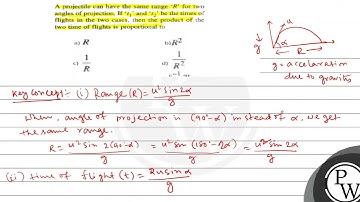 A projectile can have the same range 'R' for two
angles of projection. If 't₁' and 't₂' be the times of
flights in the two cases, then the product of the
two time of flights is proportional to
a) R
b) R²
c) 1/R
d) 1/R²
u
α
R
g
g = acceleration
due to gravity
Key concept:- (i) Range (R) = u² sin 2α / g
When, angle of projection is (90°-α) instead of α, we get
the same range.
R = u² sin 2(90-α) / g = u² sin (180°-2α) / g = u² sin 2α / g
(ii) time of flight (t) = 2u sin α / g
PW